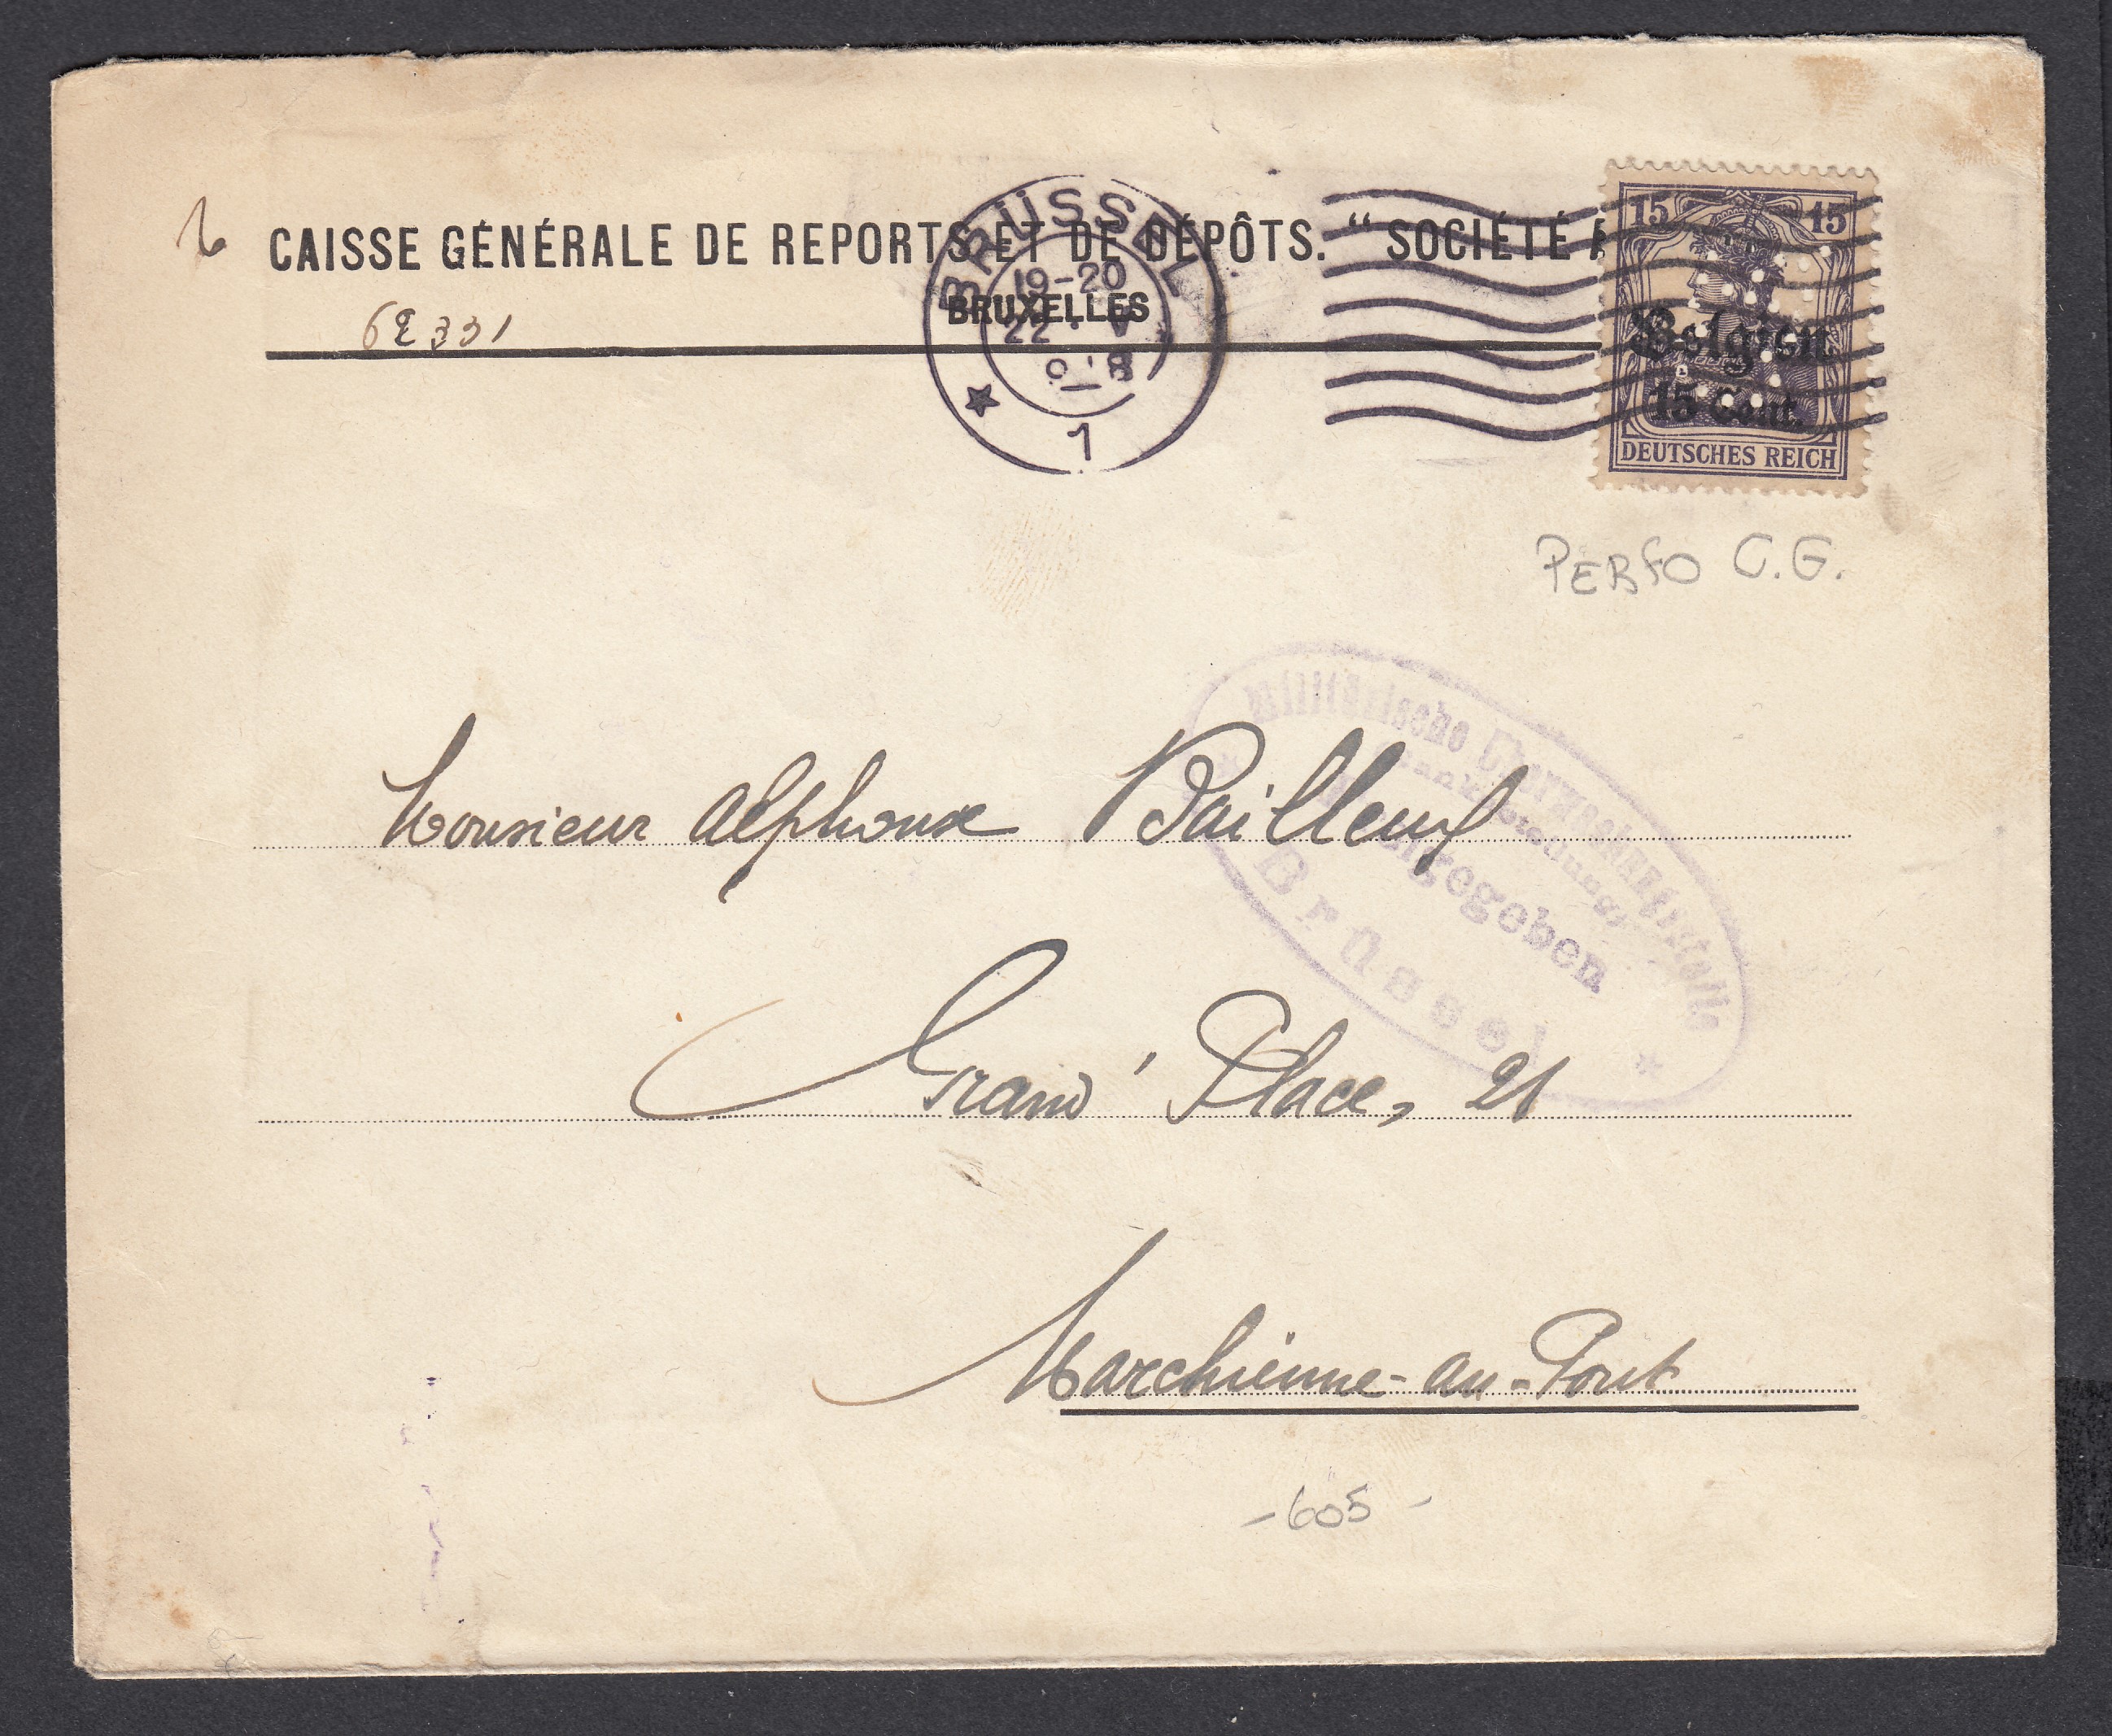 CAISSE GÉNÉRALE DE REPORTS ET DE DÉPÔTS. “ SOCIÉTÉ A
BRUXELLES
62331
BRÜSSEL
19-20
22 V
1
15 15
Belgien
15 Cent.
DEUTSCHES REICH
PERFO C.G.
Militärische Überwachungsstelle
freigegeben
Brüssel
Monsieur Alphonse Bailleux
Grand' Place, 21
Marchienne-au-Pont
-605-